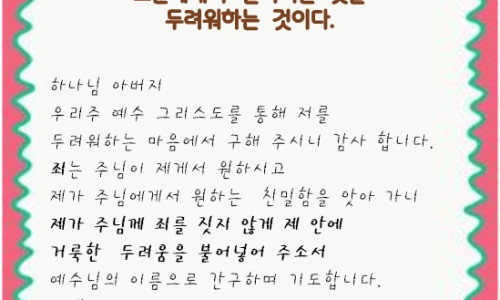 두려워하는 것이다.
하나님 아버지
우리주 예수 그리스도를 통해 저를
두려워하는 마음에서 구해 주시니 감사 합니다.
죄는 주님이 제게서 원하시고
제가 주님에게서 원하는 친밀함을 앗아 가니
제가 주님께 죄를 짓지 않게 제 안에
거룩한 두려움을 불어넣어 주소서
예수님의 이름으로 간구하며 기도합니다.